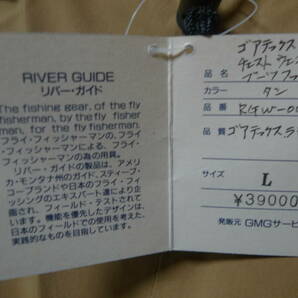 RIVER GUIDE
リバー・ガイド
The fishing gear, of the fly
fisherman, by the fly fisher
man, for the fly fisherman.
フライ・フィッシャーマンの、フライ
・フィッシャーマンによる、フライ
・フィッシャーマンの為の用具。
リバーガイドの製品は、アメリ
カ・モンタナ州のガイド、スティーブ・
コーブランドや日本のフライ・フィ
ッシングのエキスパート達により企
画され、フィールド・テストされて
います。機能を優先したデザインは、
日本のフィールドでの使用を考えた、
実践的なものを目指しています。
ゴアテックス
チェスト ウェ
品名 ブーツフッ
カラー タン
品番 RGW-0
品質 ゴアテックスラ
サイズ L
¥39000
発販元 GMGサービ